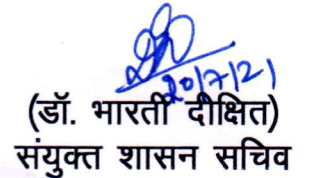 20/7/21
(डॉ. भारती दीक्षित)
संयुक्त शासन सचिव